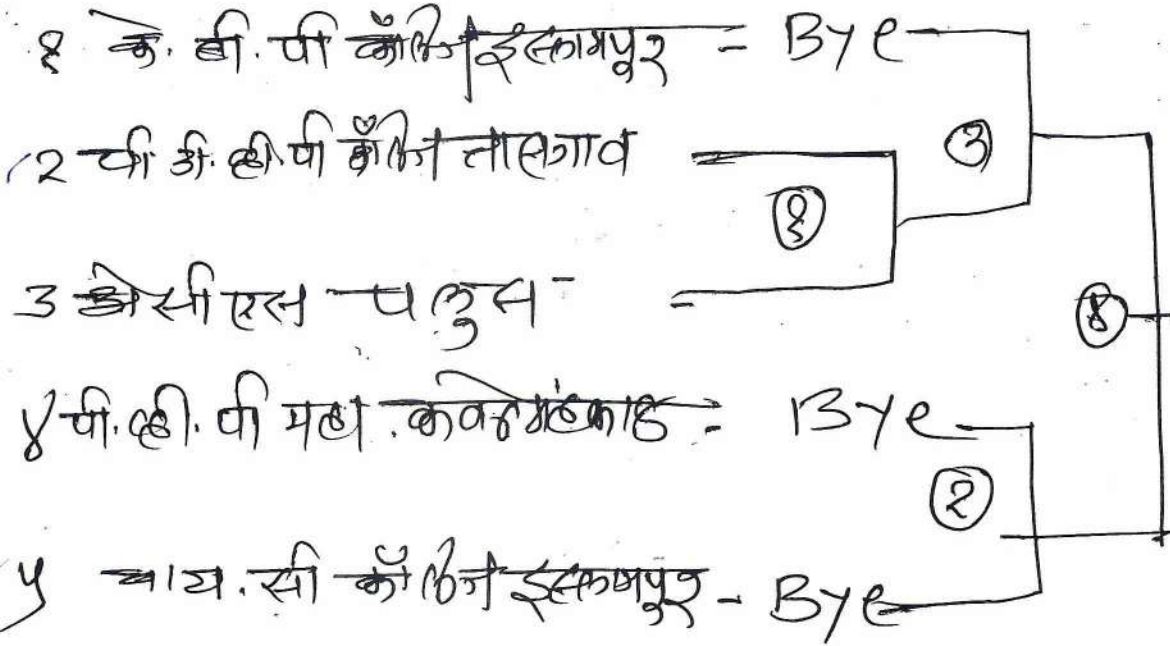 १ के. बी. पी कॉलेज इस्लामपूर - Bye
२ पी. डी. व्ही. पी कॉलेज तासगाव
(३)
(१)
३ अेसीएस पलुस -
(४)
४ पी. व्ही. पी महा. कवठेमहंकाळ - Bye
(२)
५ वाय. सी कॉलेज इस्लामपूर - Bye